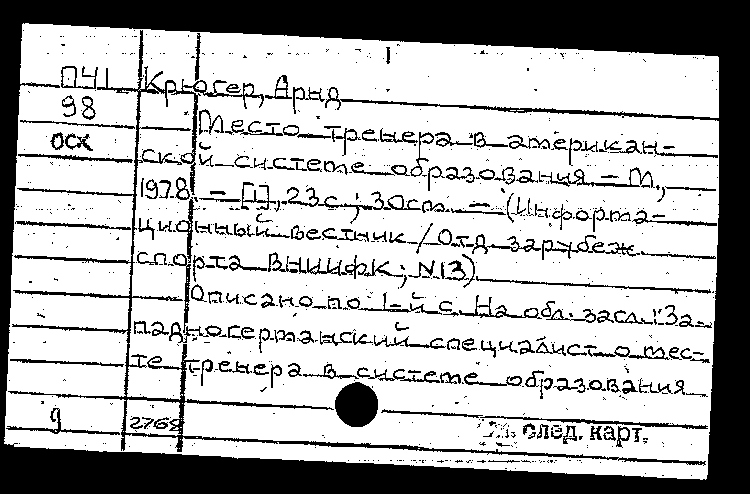 П41 Крюгер, Арнд
98
Место тренера в американ-
осх
ской системе образования. – М.,
1978. – [I], 23с.; 30см. – (Информа-
ционный вестник / Отд. зарубеж.
спорта ВНИИФК; N13)
Описано по 1-й с. На обл. загл.: За-
падногерманский специалист о мес-
те тренера в системе образования
9 2768 След. карт.